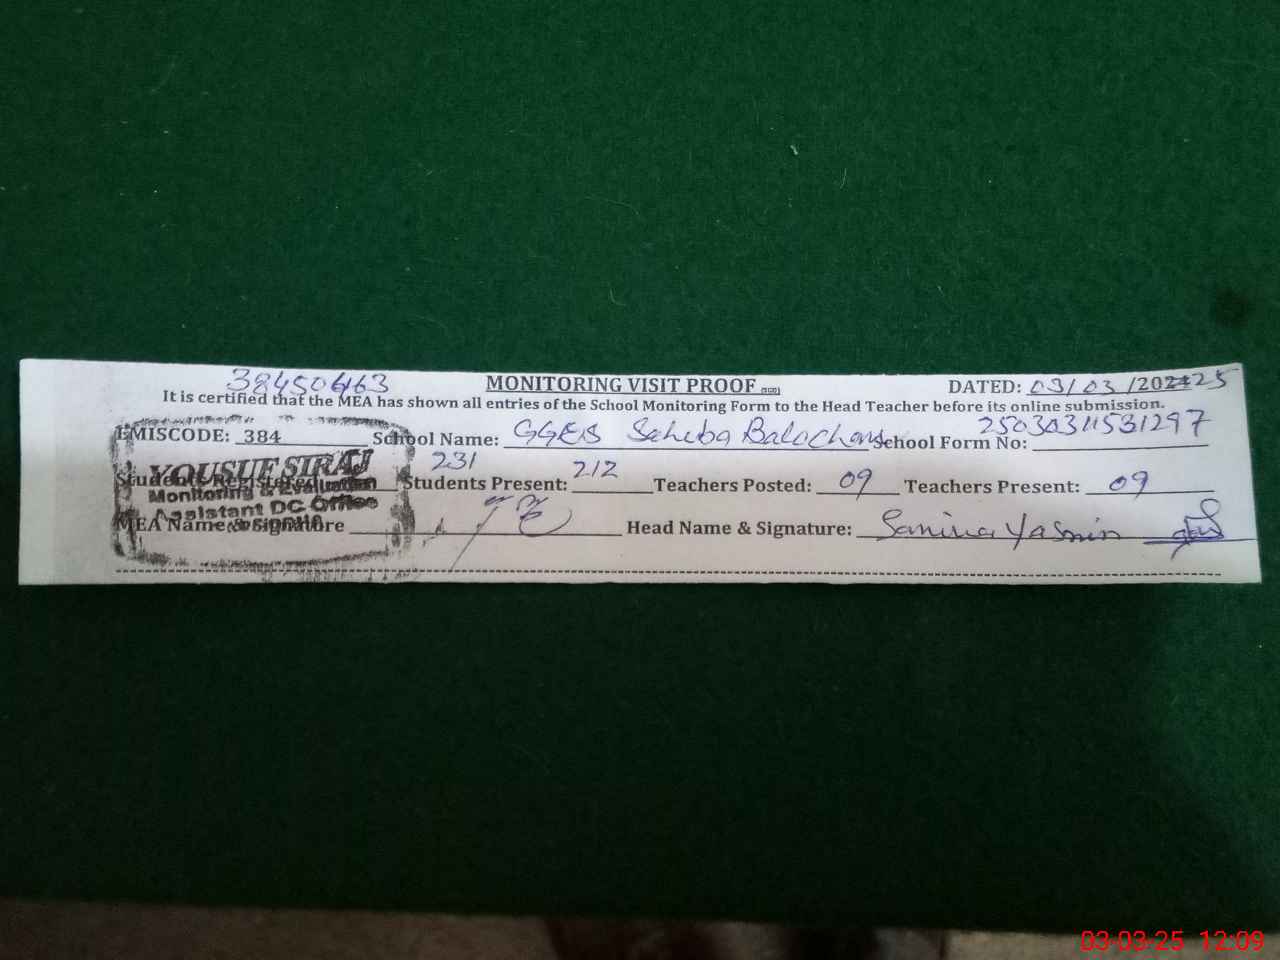 384506163 MONITORING VISIT PROOF DATED: 03/03/202425
It is certified that the MEA has shown all entries of the School Monitoring Form to the Head Teacher before its online submission.
EMISCODE: 384 School Name: GGES Saheba Balochan School Form No: 25030311531297
YOUSUF SIRAJ
Students Registered 231 Students Present: 212 Teachers Posted: 09 Teachers Present: 09
Monitoring & Evaluation
Assistant DC Office
MEA Name & Signature Head Name & Signature: Samina Yasmin
03-03-25 12:09